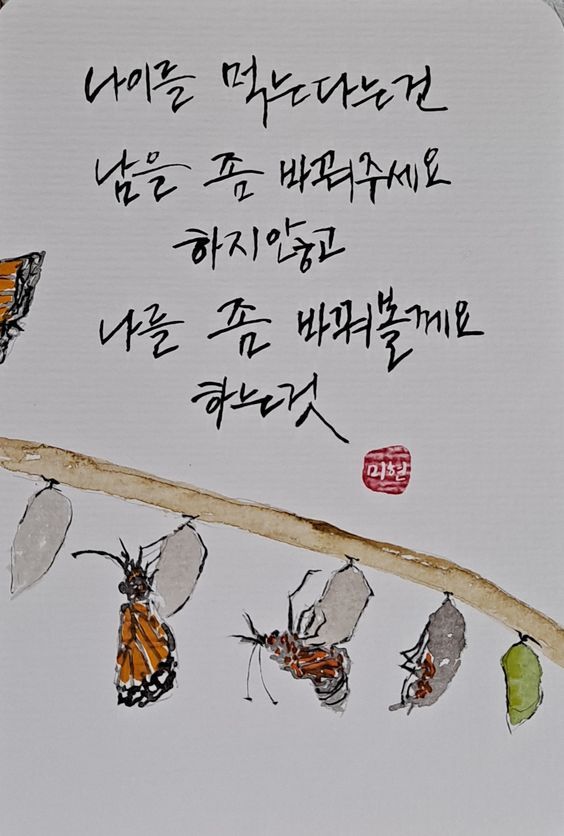 나이를 먹는다는건
남을 좀 바꿔주세요
하지않고
나를 좀 바꿔볼게요
하는것
미현